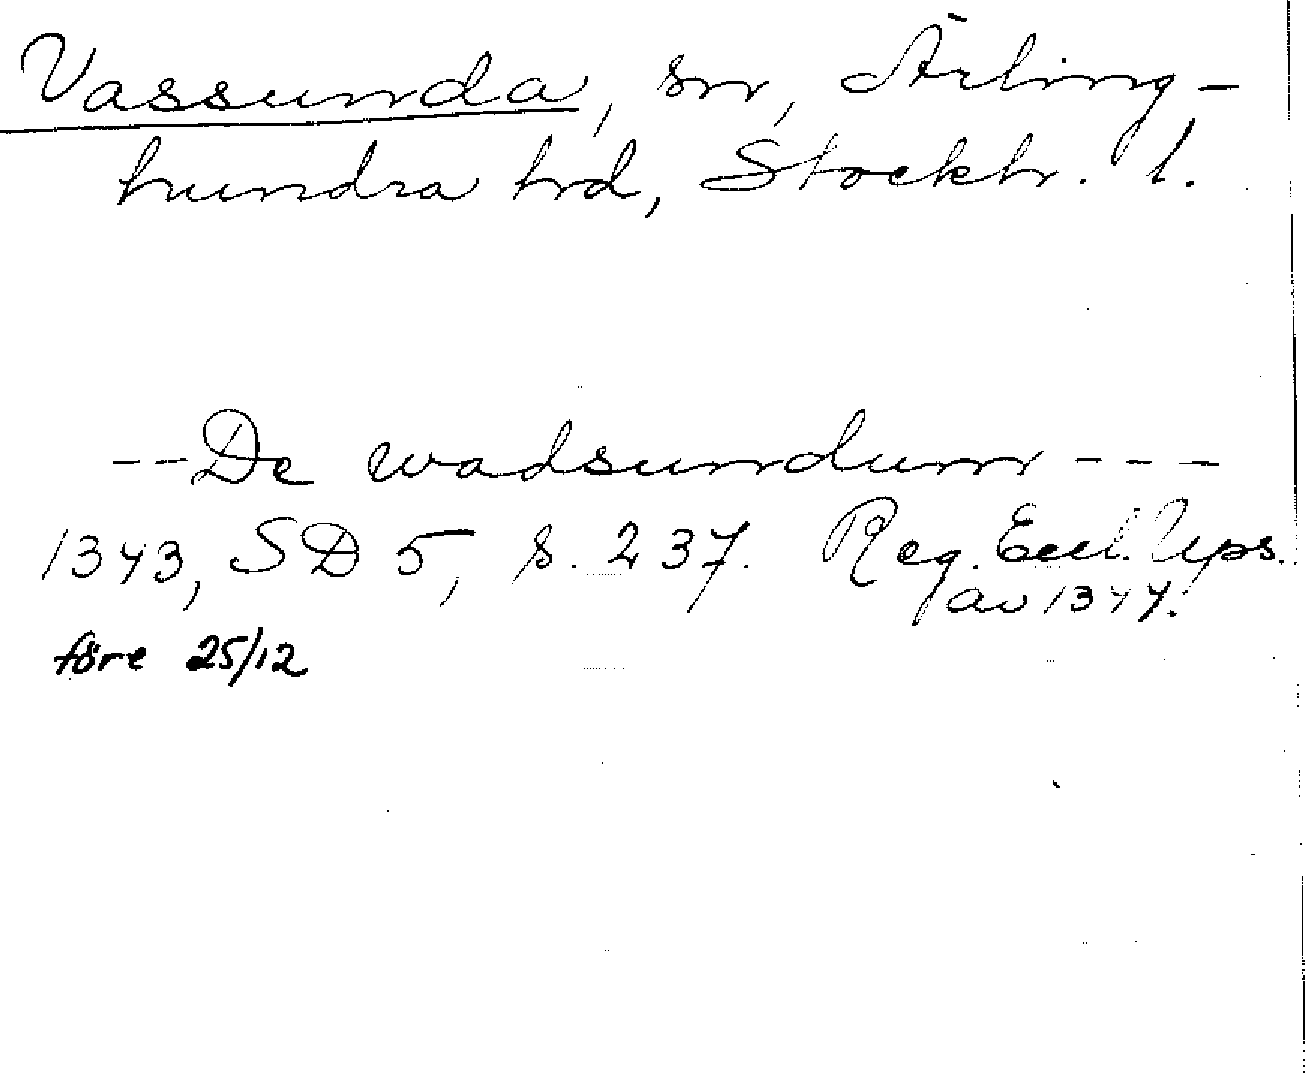 Vassunda, sn, Ärling-
hundra hd, Stockh. l.
-- De wadsundum ---
1343, SD 5, s. 237. Reg. Eccl. Ups.
av 1344.
före 25/12